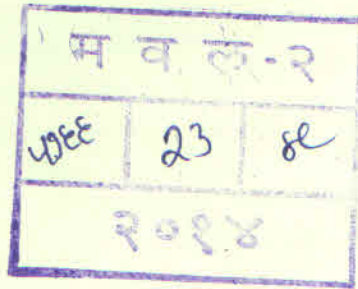 म व ल-२
५७६६ 23 ४८
२०१४